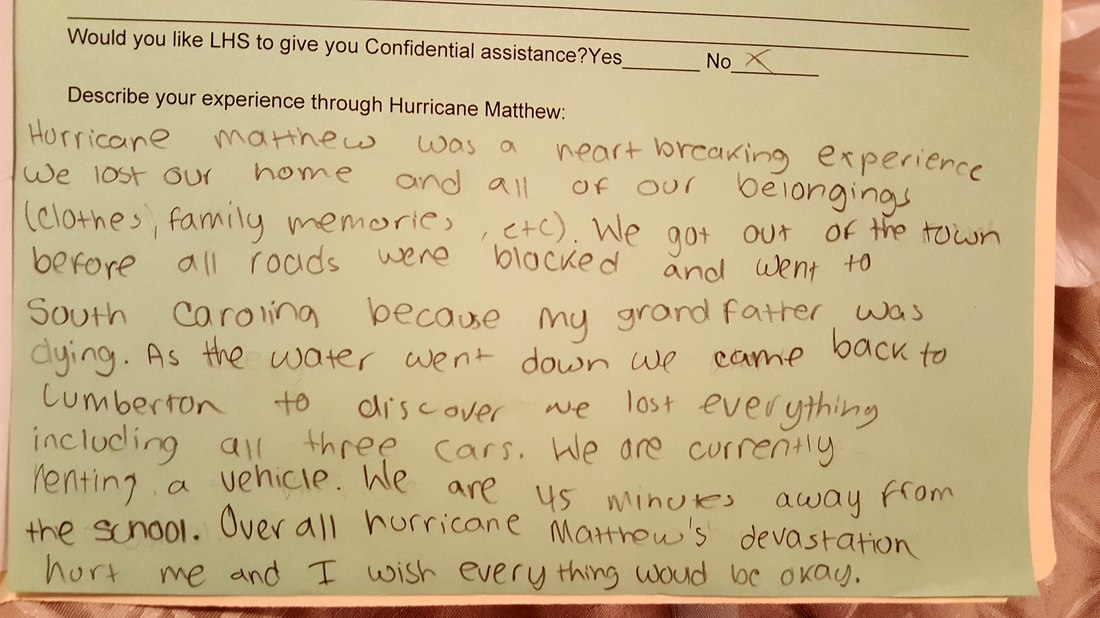 Would you like LHS to give you Confidential assistance?Yes______ No__X__
Describe your experience through Hurricane Matthew:
Hurricane matthew was a heart breaking experience
We lost our home and all of our belongings
(clothes, family memories, etc). We got out of the town
before all roads were blocked and went to
South Carolina because my grandfather was
dying. As the water went down we came back to
Lumberton to discover we lost everything
including all three cars. We are currently
renting a vehicle. We are 45 minutes away from
the school. Over all hurricane Matthew's devastation
hurt me and I wish everything woud be okay.